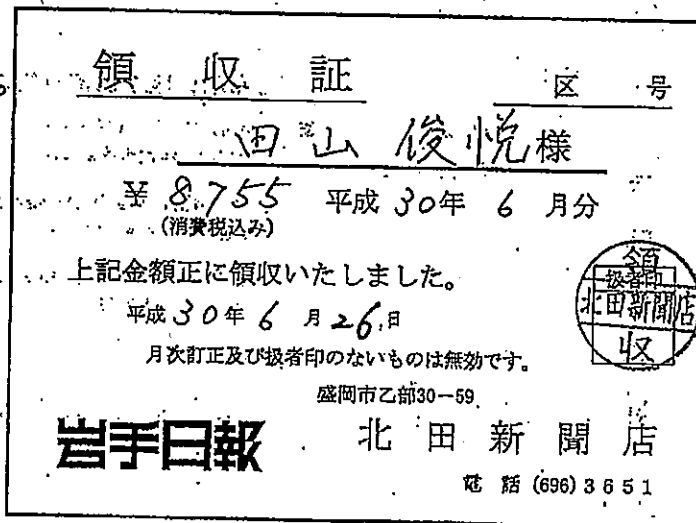 領収証
区 号
田山俊悦様
¥8,755 平成30年6月分
(消費税込み)
上記金額正に領収いたしました。
平成30年6月26日
月次訂正及び扱者印のないものは無効です。
領
扱者印
北田新聞店
収
盛岡市乙部30-59
岩手日報 北田新聞店
電話(696)3651